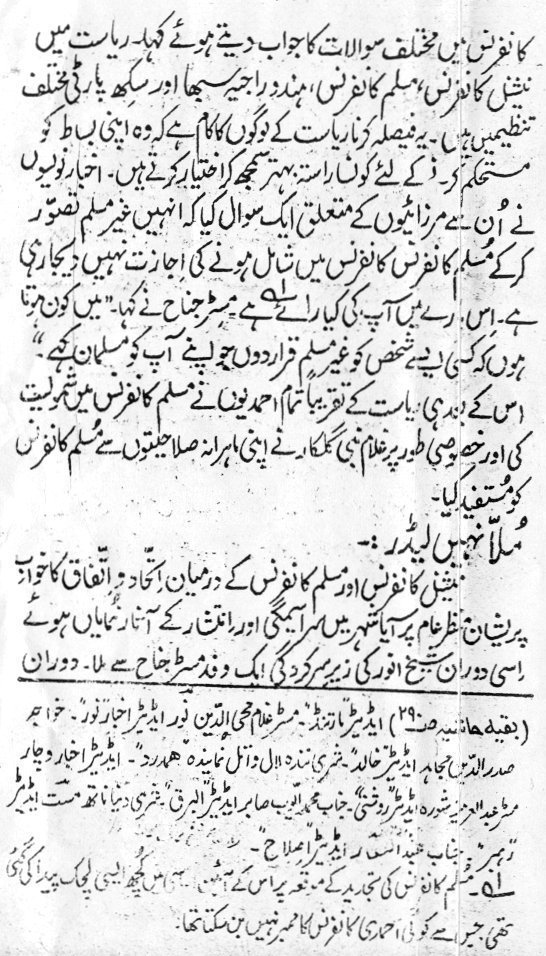 کانفرنس میں مختلف سوالات کا جواب دیتے ہوئے کہا۔ ریاست میں
نیشنل کانفرنس، مسلم کانفرنس، ہندو راجیہ سبھا اور سکھ پارٹی مختلف
تنظیمیں ہیں۔ یہ فیصلہ کرنا ریاست کے لوگوں کا کام ہے کہ وہ اپنی بساط کو
مستحکم کرنے کے لئے کونسا راستہ بہتر سمجھ کر اختیار کرتے ہیں۔ اخبار نویسوں
نے اُن سے مرزائیوں کے متعلق ایک سوال کیا کہ انہیں غیر مسلم تصوّر
کر کے مُسلم کانفرنس میں شامل ہونے کی اجازت نہیں دیجا رہی
ہے۔ اِس بارے میں آپ کی کیا رائے ہے۔ مسٹر جناح نے کہا۔ "میں کون ہوتا
ہوں کہ کسی ایسے شخص کو غیر مسلم قرار دوں جو اپنے آپ کو مسلمان کہے"۔
اس کے بعد ہی ریاست کے تقریباً تمام احمدیوں نے مسلم کانفرنس میں شمولیت
کی اور خصوصی طور پر غلام نبی گلکار نے اپنی ماہرانہ صلاحیتوں سے مُسلم کانفرنس
کو مُستفید کیا۔
مُلّا نہیں لیڈر :۔
نیشنل کانفرنس اور مسلم کانفرنس کے درمیان اِتّحاد و اِتّفاق کا خواب
پریشان منظر عام پر آیا شہر میں سراسیمگی اور انتشار کے آثار نمایاں ہوئے
اِسی دوران شیخ انور کی زیر سرکردگی ایک وفد مسٹر جناح سے ملا۔ دوران
(بقیہ حاشیہ صفہ ۲۹) ایڈیٹر "مارتنڈ"۔ مسٹر غلام محی الدین نور ایڈیٹر اخبار "نور"۔ خواجہ
صدر الدین مجاہد ایڈیٹر "خالد"۔ شری نندہ لال واتل نمایندہ "ہمدرد"۔ ایڈیٹر اخبار وچار
مسٹر عبد العزیز شورہ ایڈیٹر "روشنی"۔ جناب محمد ایوب صابر ایڈیٹر "البرق"۔ شری دینا ناتھ مست ایڈیٹر
"رہبر" جناب ایڈیٹر "اصلاح"۔
۱؎ مسلم کانفرنس کی تجدید کے موقعہ پر اس کے آئین میں کُچھ ایسی لچک پیدا کی گئی
تھی جس سے کوئی احمدی کانفرنس کا ممبر نہیں بن سکتا تھا۔